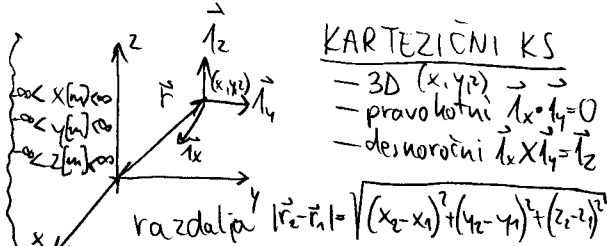 z
1⃗z
(x,y,z)
r⃗
1⃗y
1⃗x
y
x
-∞< x[m]<∞
-∞< y[m]<∞
-∞< z[m]<∞
KARTEZIČNI KS
— 3D (x,y,z)
— pravokotni 1⃗x·1⃗y=0
— desnoročni 1⃗x×1⃗y=1⃗z
razdalja |r⃗2-r⃗1|=√((x2-x1)²+(y2-y1)²+(z2-z1)²)